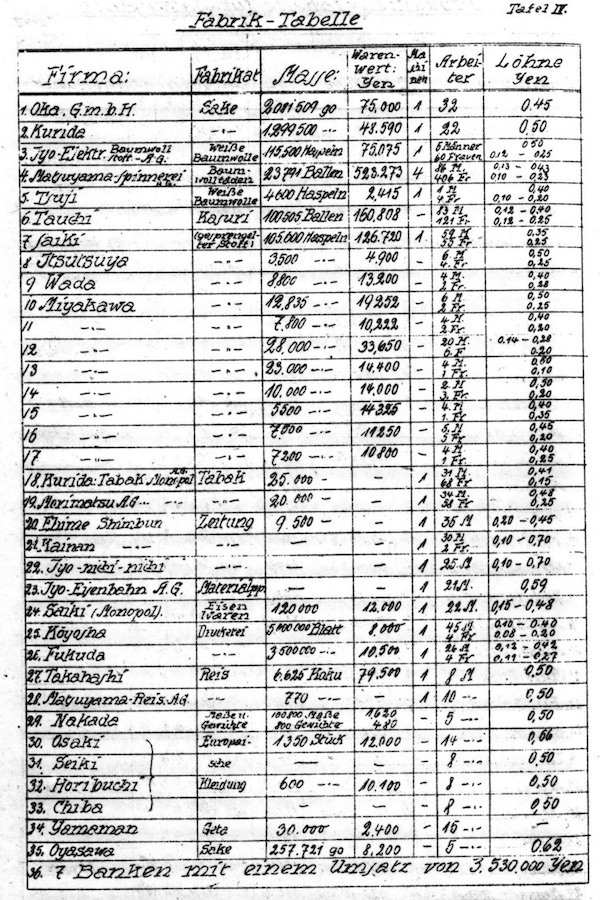 Tafel IV.
Fabrik-Tabelle
Firma: Fabrikat Masse: Waren-wert: Yen Maschinen Arbeiter Löhne Yen
1. Oka, G.m.b.H. Sake 2.001509 go 75.000 1 32 0.45
2. Kurida -·- 1.299500 -·- 48.590 1 22 0,50
3. Jyo-Elektr. Baumwoll Stoff-A.G. Weiße Baumwolle 115,500 Haspeln 75,075 1 5 Männer 60 Frauen 0,50 0,12 - 0,25
4. Matsuyama-Spinnerei A.G. Baumwollfäden 23791 Ballen 523.273 4 96 M. 406 Fr. 0,13 - 0,43 0,10 - 0,23
5. Tsuji Weiße Baumwolle 4600 Haspeln 2,415 1 1 M 4 Fr. 0,40 0,10 - 0,20
6 Tauchi Kasuri 100505 Ballen 160,808 - 13 M 121 Fr. 0,12 - 0,40 0,12 - 0,25
7 Saiki (gesprengelter Stoff) 105.600 Haspeln 126.720 1 59 M 33 Fr. 0,35 0,25
8 Itsutsuya -·- 3,500 -·- 4.900 - 6 M. 4 Fr. 0,50 0,25
9 Wada -·- 8800 -·- 13,200 - 4 M. 2 Fr. 0,40 0,28
10 Miyakawa -·- 12,835 -·- 19252 - 6 M 2 Fr. 0,50 0,25
11 -·- -·- 7,800 -·- 10,222 - 4 M. 2 Fr. 0,40 0,20
12 -·- -·- 28.000 -·- 33,650 - 20 M. 6 F 0.14 - 0,28 0.20
13 -·- -·- 23.000 -·- 14.400 - 4 M. 1 Fr. 0,60 0,10
14 -·- -·- 10.000 -·- 14,000 - 2 M. 3 Fr. 0,30 0,20
15 -·- -·- 5500 -·- 14325 - 4 M 1 Fr. 0,40 0,35
16 -·- -·- 7,500 -·- 11250 - 5 M 3 Fr 0,45 0,20
17 -·- -·- 7200 -·- 10800 - 4 M 1 Fr 0,40 0,25
18. Kurida: Tabak Monopol A.G. Tabak 25.000 -·- - 1 31 M. 68 Fr 0,41 0,15
19. Morimatsu A.G. -·- -·- 20.000 -·- - 1 34 M. 38 Fr 0,48 0,25
20. Ehime Shimbun Zeitung 9.500 - - 1 35 M 0,20 - 0,45
21. Kainan -·- -·- - 1 30 M 2 Fr. 0,10 - 0,70
22. Jyo-nichi-nichi -·- -·- - 1 25 M 0,10 - 0,70
23. Jyo-Eyenbahn A.G. Materialpp. - - 1 21 M. 0,59
24. Saiki (Monopol). Eisenwaren 120000 12,000 1 22 M. 0,15 - 0,48
25. Kōyosha Druckerei 5000000 Blatt 8.000 1 45 M 4 Fr 0.10 - 0.40 0.08 - 0.20
26. Fukuda -·- 3500000 -·- 10,500 1 26 M 4 Fr 0,12 - 0,42 0,11 - 0,27
27. Takahashi Reis 6.625 Koku 79,500 1 8 M 0.50
28. Matsuyama-Reis. A.G. -·- 770 -·- - 1 10 -·- 0,50
29. Nakada Maße u. Gewichte 100800 Maße 800 Gewichte 1,620 480 - 5 -·- 0,50
30. Osaki Europäi- 1350 Stück 12.000 - 14 -·- 0,66
31. Seiki sche - - - 8 -·- 0,50
32. Horibuchi Kleidung 600 -·- 10.100 - 8 -·- 0,50
33. Chiba - - - 8 -·- 0,50
34. Yamaman Geta 30.000 2,400 - 16 -·- -
35. Oyasawa Sake 257.721 go 8,200 - 5 -·- 0.62
36. 7 Banken mit einem Umsatz von 3,530.000 Yen